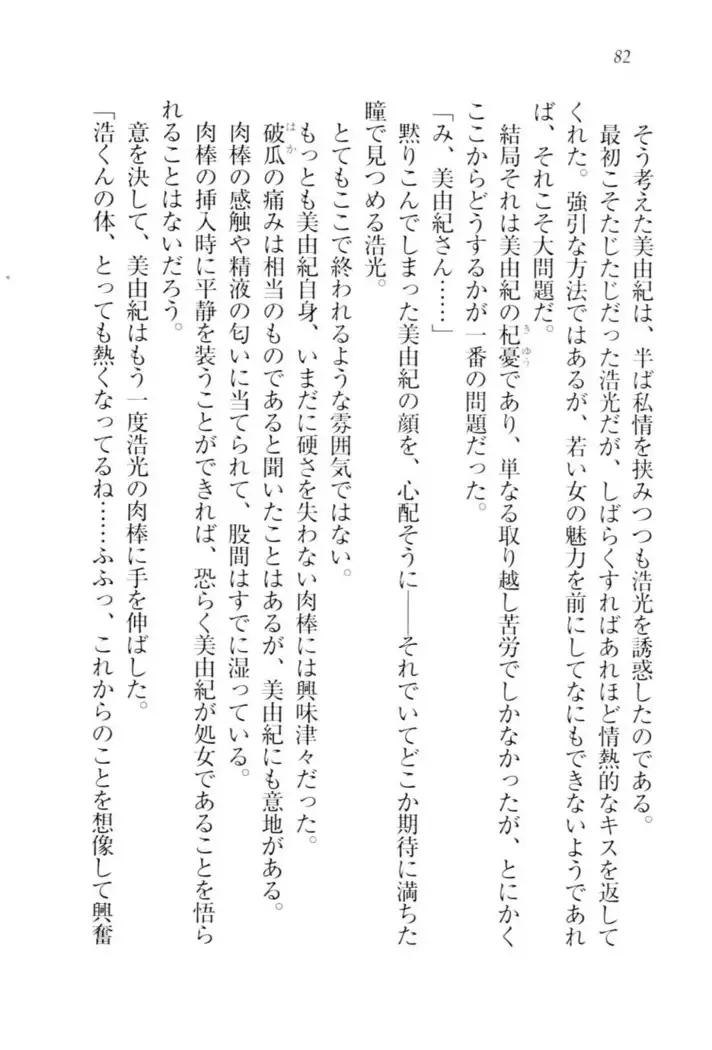 82
そう考えた美由紀は、半ば私情を挟みつつも浩光を誘惑したのである。
最初こそたじたじだった浩光だが、しばらくすればあれほど情熱的なキスを返して
くれた。強引な方法ではあるが、若い女の魅力を前にしてなにもできないようであれ
ば、それこそ大問題だ。
結局それは美由紀の杞憂であり、単なる取り越し苦労でしかなかったが、とにかく
ここからどうするかが一番の問題だった。
「み、美由紀さん……」
黙りこんでしまった美由紀の顔を、心配そうに――それでいてどこか期待に満ちた
瞳で見つめる浩光。
とてもここで終われるような雰囲気ではない。
もっとも美由紀自身、いまだに硬さを失わない肉棒には興味津々だった。
破瓜の痛みは相当のものであると聞いたことはあるが、美由紀にも意地がある。
肉棒の感触や精液の匂いに当てられて、股間はすでに湿っている。
肉棒の挿入時に平静を装うことができれば、恐らく美由紀が処女であることを悟ら
れることはないだろう。
意を決して、美由紀はもう一度浩光の肉棒に手を伸ばした。
「浩くんの体、とっても熱くなってるね……ふふっ、これからのことを想像して興奮